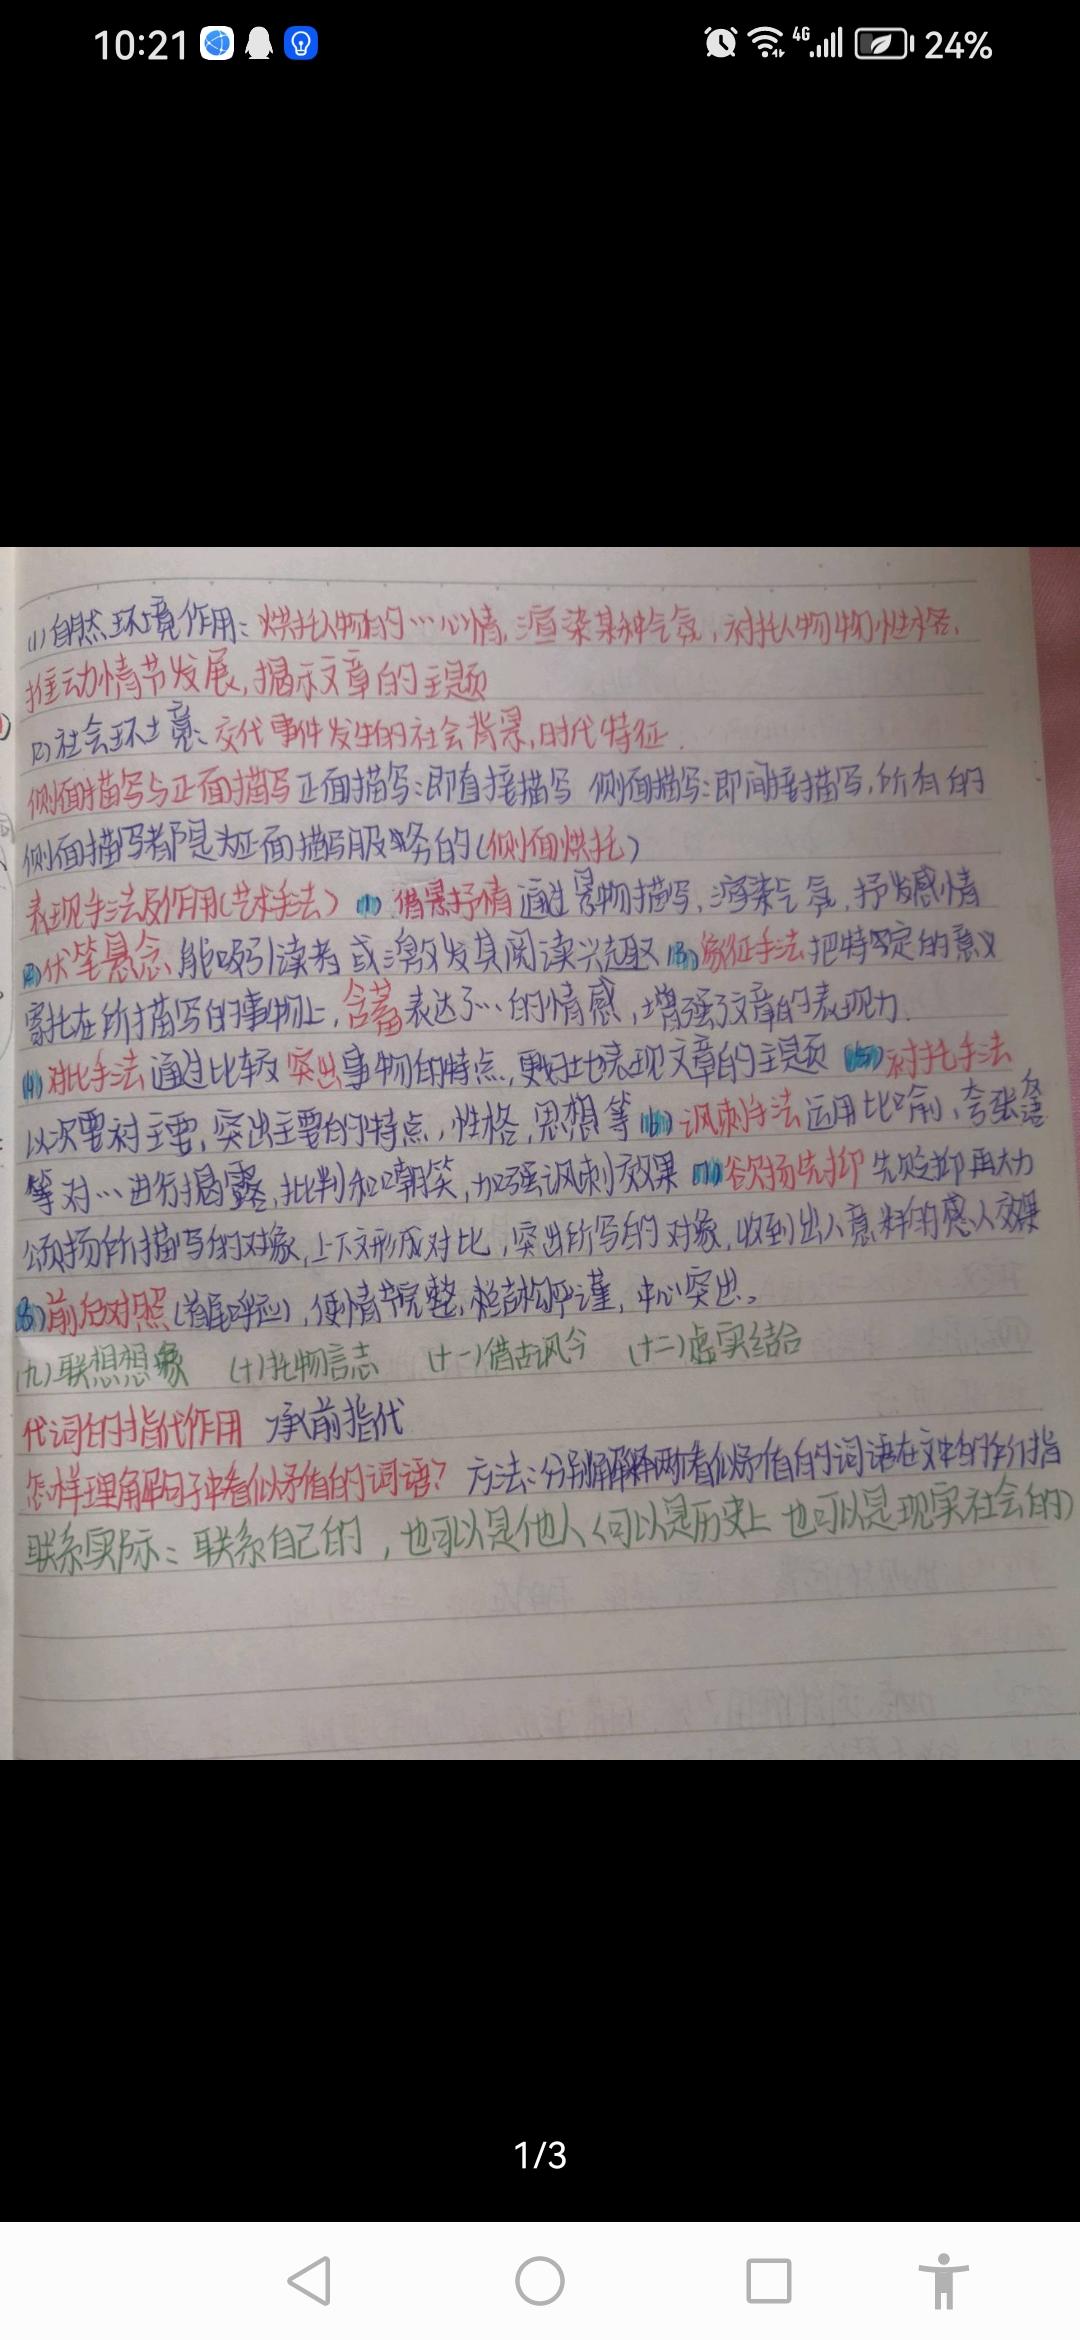 10:21
4G
24%
(1)自然环境作用:烘托人物的…心情,渲染某种气氛,衬托人物物性格,
推动情节发展,揭示文章的主题
(2)社会环境:交代事件发生的社会背景,时代特征.
侧面描写与正面描写 正面描写:即直接描写 侧面描写:即间接描写,所有的
侧面描写都是为正面描写服务的(侧面烘托)
表现手法及作用(艺术手法) (1)借景抒情 通过景物描写,渲染气氛,抒发感情
(2)伏笔悬念 能吸引读者或激发其阅读兴趣 (3)象征手法 把特定的意义
寄托在所描写的事物上,含蓄表达了…的情感,增强了文章的表现力.
(4)对比手法 通过比较突出事物的特点,更好地表现文章的主题 (5)衬托手法
以次要衬主要,突出主要的特点,性格,思想等 (6)讽刺手法 运用比喻,夸张
等对…进行揭露,批判和嘲笑,加强讽刺效果 欲扬先抑 先贬抑再大力
颂扬所描写的对象,上下文形成对比,突出所写的对象,收到出人意料的感人效果
(8)前后对照(首尾呼应),使情节完整,结构严谨,中心突出。
(九)联想想象 (十)托物言志 (十一)借古讽今 (十二)虚实结合
代词的指代作用 承前指代
怎样理解句子中看似矛盾的词语? 方法:分别解释两个看似矛盾的词语在文中的所指
联系实际:联系自己的,也可以是他人(可以是历史上 也可以是现实社会的)
1/3